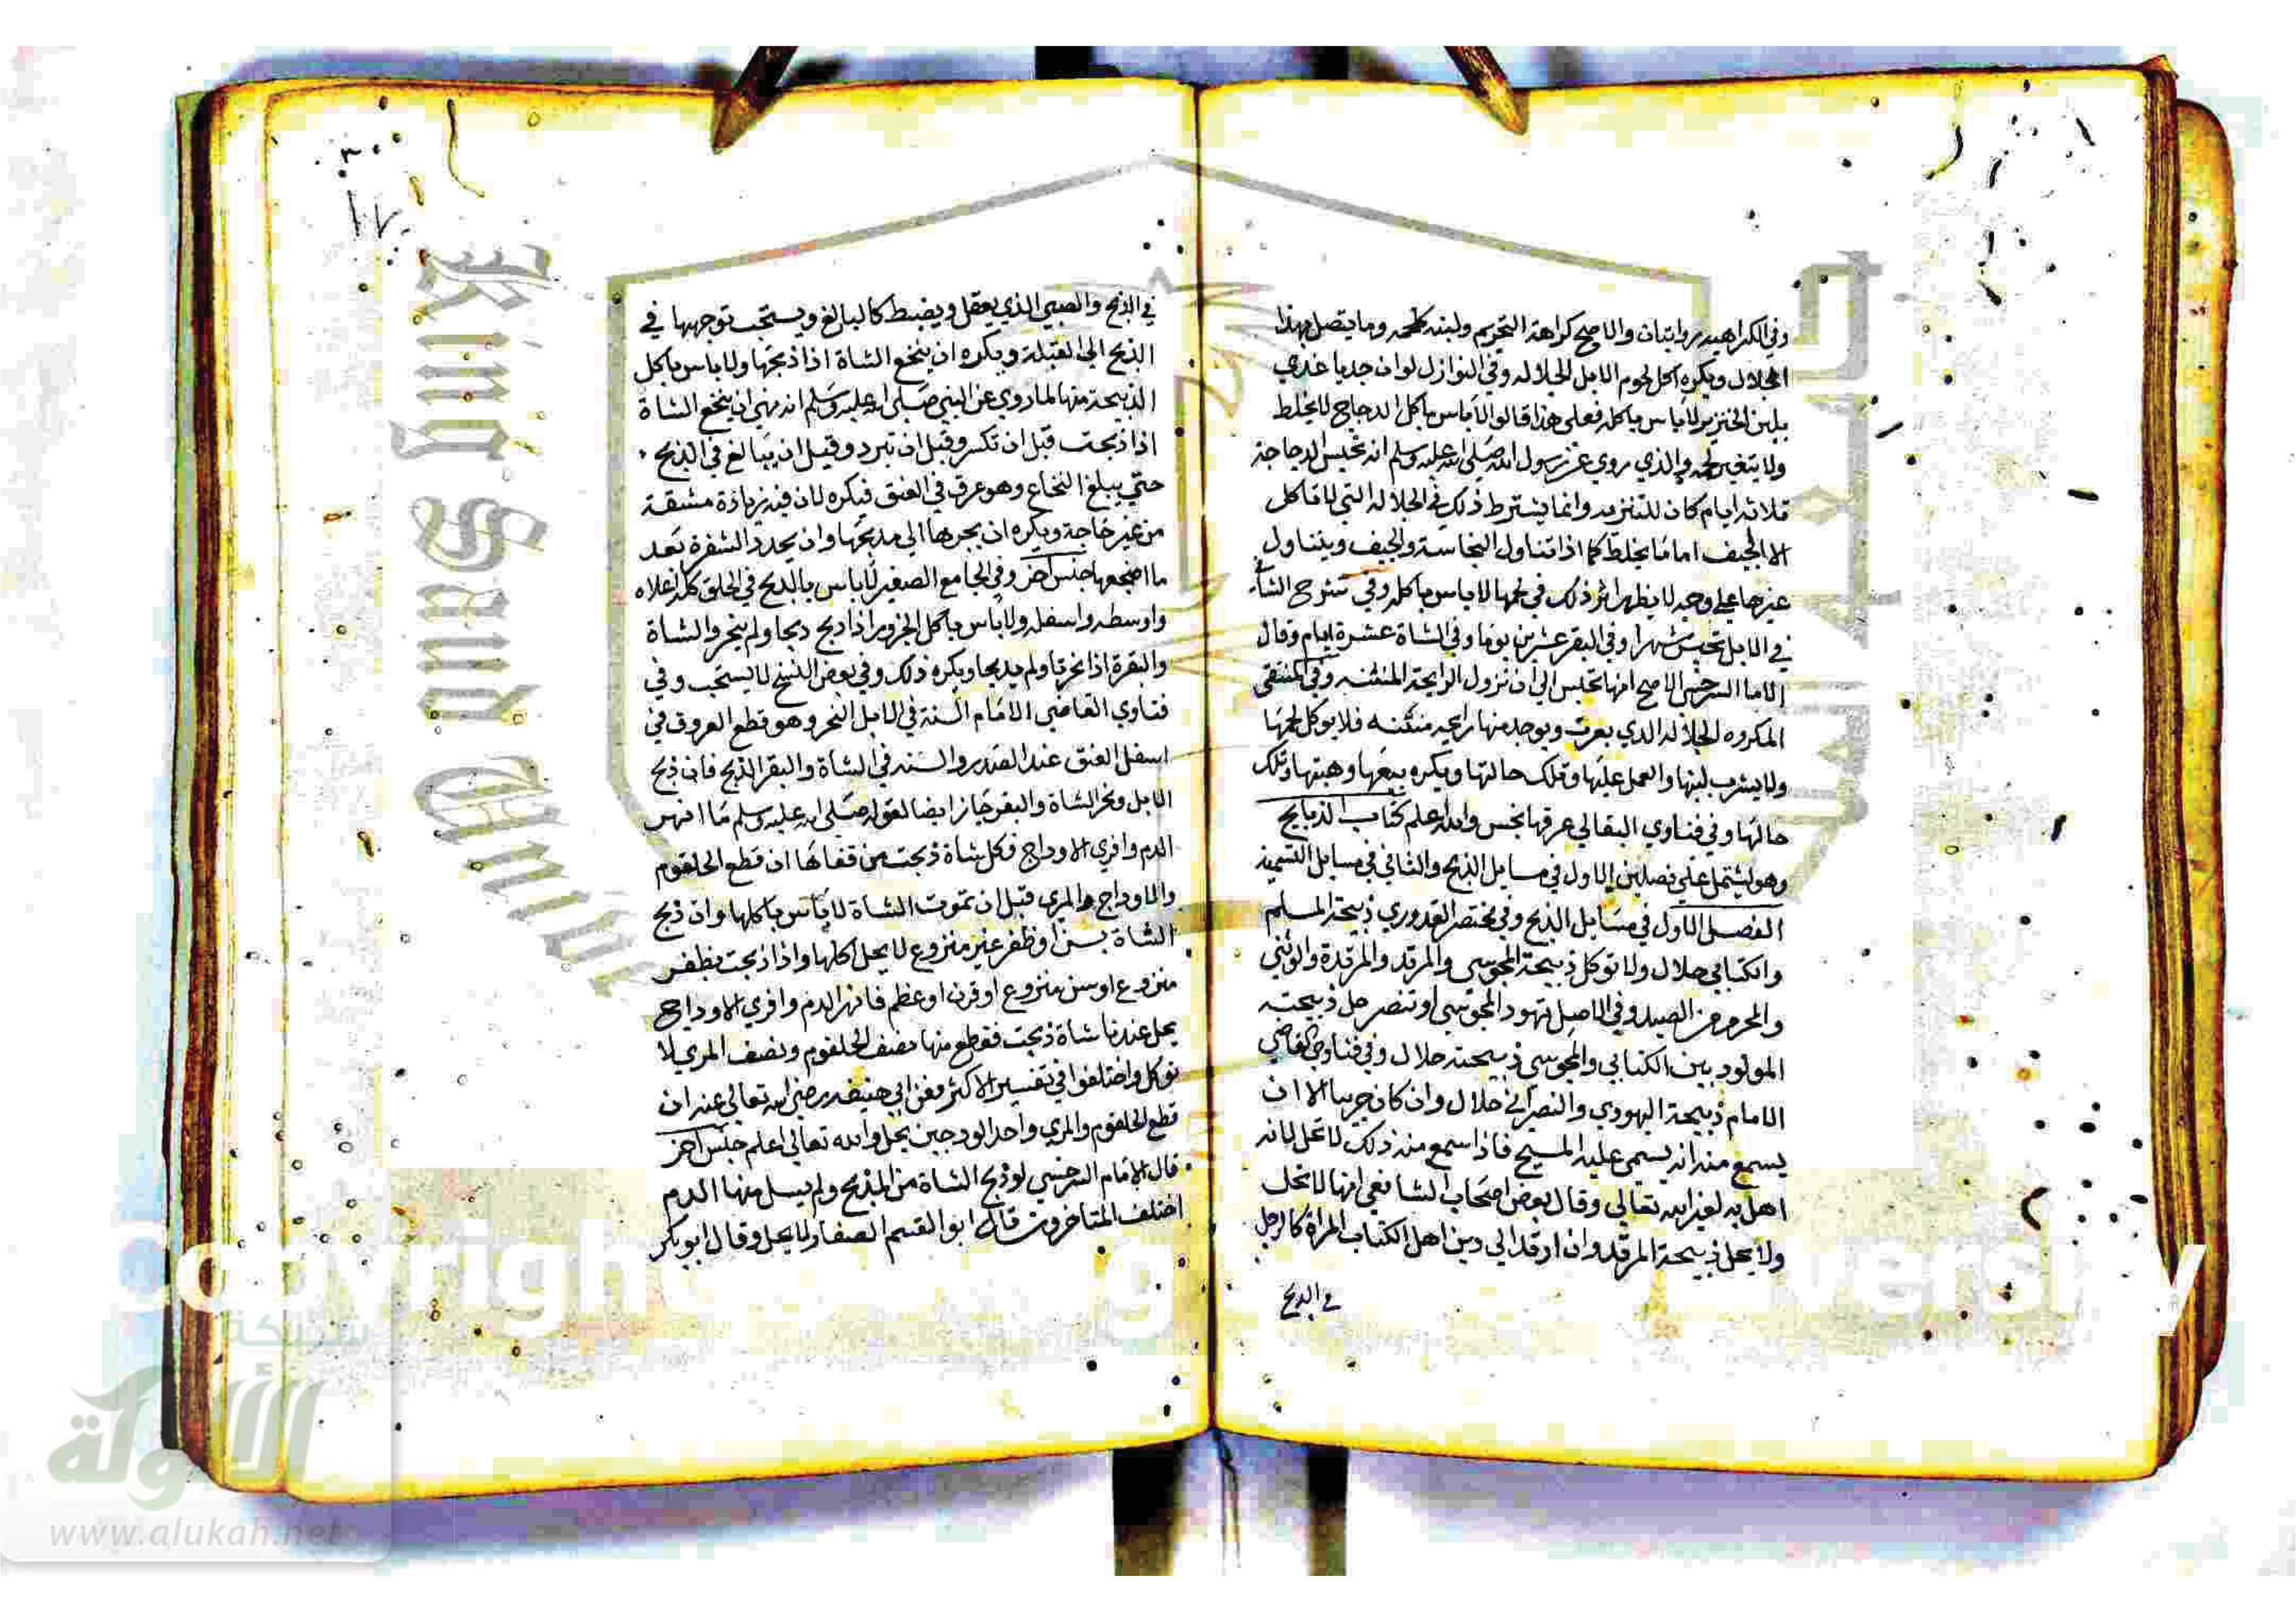 وفي الكراهية روايتان والاصح كراهة التحريم ولبنه كلحمه وما يتصل بهذا
الجلال ويكره اكل لحوم الابل الجلالة وفي النوازل لو ان جديا غذي
بلبن الخنزير لا باس باكله فعلى هذا قالوا لا باس باكل الدجاج لانه يخلط
ولا يتغير لحمه والذي روي عن رسول الله صلى الله عليه وسلم انه تحبس الدجاجة
ثلاثة ايام كان للتنزه وانما يشترط ذلك في الجلالة التي لا تاكل
الا الجيف اما ما يخلط كما اذا تناول النجاسة والجيف ويتناول
غيرها على وجه لا يظهر اثر ذلك في لحمها لا باس باكله وفي شروح الشاة
في الابل تحبس شهرا وفي البقر عشرين يوما وفي الشاة عشرة ايام وقال
الامام السرخسي الاصح انها تحبس الى ان تزول الرايحة المنتنه وفي المنتقى
المكروه الجلالة الذي يعرت ويوجد منها رايحة منتنه فلا يوكل لحمها
ولا يشرب لبنها والعمل عليها وتلك حالتها ويكره بيعها وهبتها وتلك
حالها وفي فتاوي البقالي عرقها نجس والله اعلم كتاب الذبايح
وهو يشتمل على فصلين الاول في مسايل الذبح والثاني في مسايل التسمية
الفصل الاول في مسايل الذبح وفي مختصر القدوري ذبيحة المسلم
والكتابي حلال ولا توكل ذبيحة المجوسي والمرتد والمرتدة والوثني
والمحرم من الصيد وفي الاصل تهود المجوسي او تنصر حل ذبيحته
المولود بين الكتابي والمجوسي ذبيحته حلال وفي فتاوي القاضي
الامام ذبيحة اليهودي والنصراني حلال وان كان حربيا الا ان
يسمع منه انه يسمي عليه المسيح فاذا سمع منه ذلك لا تحل لانه
اهل به لغير الله تعالى وقال بعض اصحاب الشافعي انها لا تحل
ولا يحل ذبيحة المرتد وان ارتد الى دين اهل الكتاب المراة كالرجل
في الذبح
٣٠٠
في الذبح والصبي الذي يعقل ويضبط كالبالغ ويستحب توجهها في
الذبح الى القبلة ويكره ان ينخع الشاة اذا ذبحها ولا باس باكل
الذبيحة منها لما روي عن النبي صلى الله عليه وسلم انه نهى ان ينخع الشاة
اذا ذبحت قبل ان تكسر وقبل ان تبرد وقيل ان يبالغ في الذبح
حتى يبلغ النخاع وهو عرق في العنق فيكره لان فيه زيادة مشقة
من غير حاجة ويكره ان يجرها الى مذبحها وان يحدد الشفرة بعد
ما اضجعها جنس اخر وفي الجامع الصغير لا باس بالذبح في الحلق كله اعلاه
واوسطه واسفله ولا باس باكل الجزور اذا ذبح ذبحا ولم ينحر والشاة
والبقرة اذا نحرتا ولم يذبحا ويكره ذلك وفي بعض النسخ لا يستحب وفي
فتاوي القاضي الامام السنة في الابل النحر وهو قطع العروق في
اسفل العنق عند الصدر والسنة في الشاة والبقر الذبح فان ذبح
الابل ونحر الشاة والبقر جاز ايضا لقوله صلى الله عليه وسلم ما انهر
الدم وافري الاوداج فكل شاة ذبحت من قفاها ان قطع الحلقوم
والاوداج والمري قبل ان تموت الشاة لا باس باكلها وان ذبح
الشاة بسن او ظفر غير منزوع لا يحل اكلها واذا ذبحت بظفر
منزوع او سن منزوع او قرن او عظم فانهر الدم وافري الاوداج
يحل عندنا شاة ذبحت فقطع منها نصف الحلقوم ونصف المري لا
توكل واختلفوا في تفسير الاكثر فعن ابي حنيفه رضي الله تعالى عنه ان
قطع الحلقوم والمري واحد الودجين يحل والله تعالى اعلم جنس اخر
قال الامام السرخسي لو ذبح الشاة من المذبح ولم يسل منها الدم
اختلف المتاخرون قال ابو القسم الصفار لا يحل وقال ابو بكر
King Saud
Copyright
versity
شبكة
الألوكة
www.alukah.net